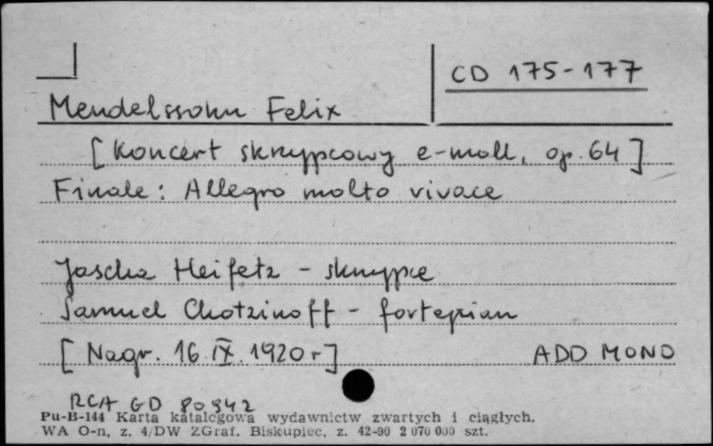 CD 175-177
Mendelssohn Felix
[Koncert skrzypcowy e-moll, op. 64]
Finale: Allegro molto vivace
Jascha Heifetz - skrzypce
Samuel Chotzinoff - fortepian
[Nagr. 16 IX 1920 r] ADD MONO
RCA GD 80942
Pu-B-144 Karta katalogowa wydawnictw zwartych i ciągłych.
WA O-n, z. 4/DW ZGraf. Biskupiec, z. 42-90 2 070 000 szt.